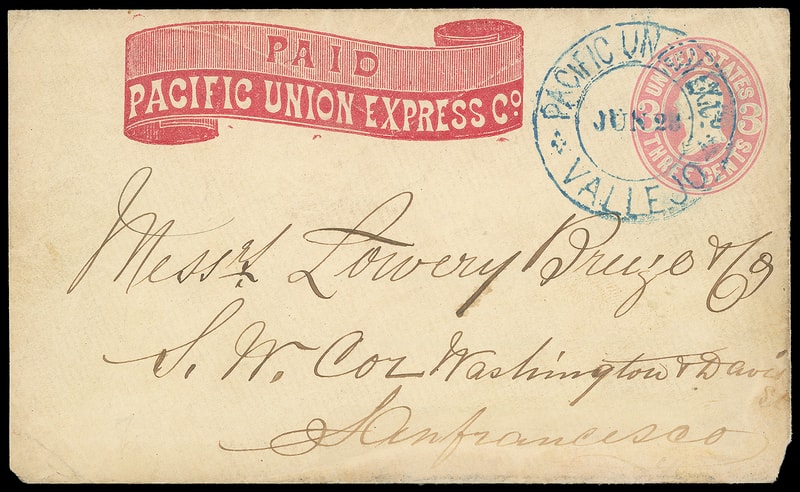 PAID
PACIFIC UNION EXPRESS Co
PACIFIC UNION EXPR. Co.
JUN 29
VALLEJO
UNITED STATES
3 3
THREE CENTS
Messrs Lowery Bruzo & Co
S. W. Cor Washington & Davis
St
Sanfrancesco